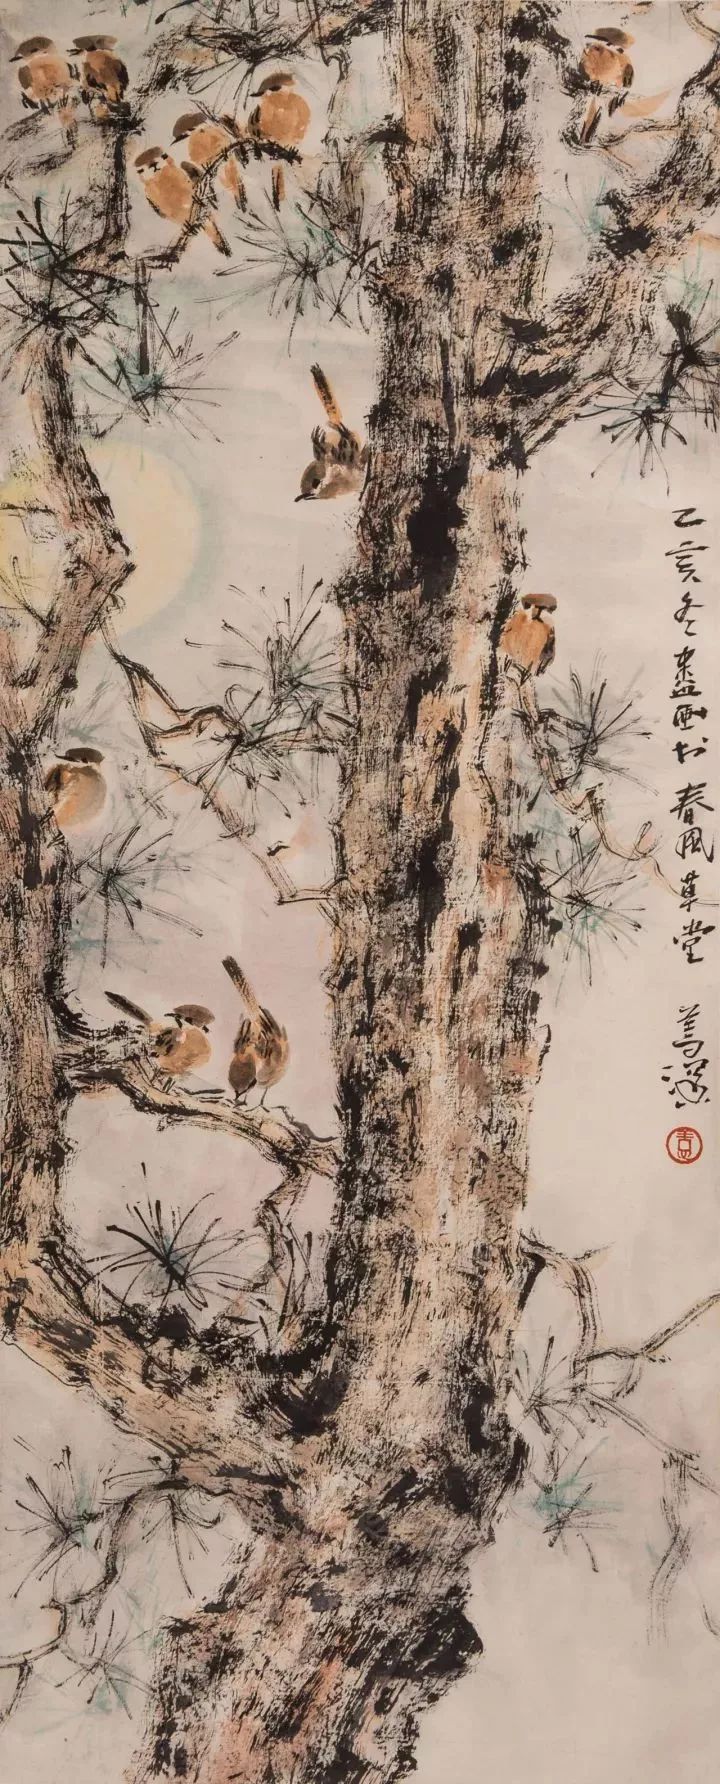 乙亥冬盡画於春風草堂 善深